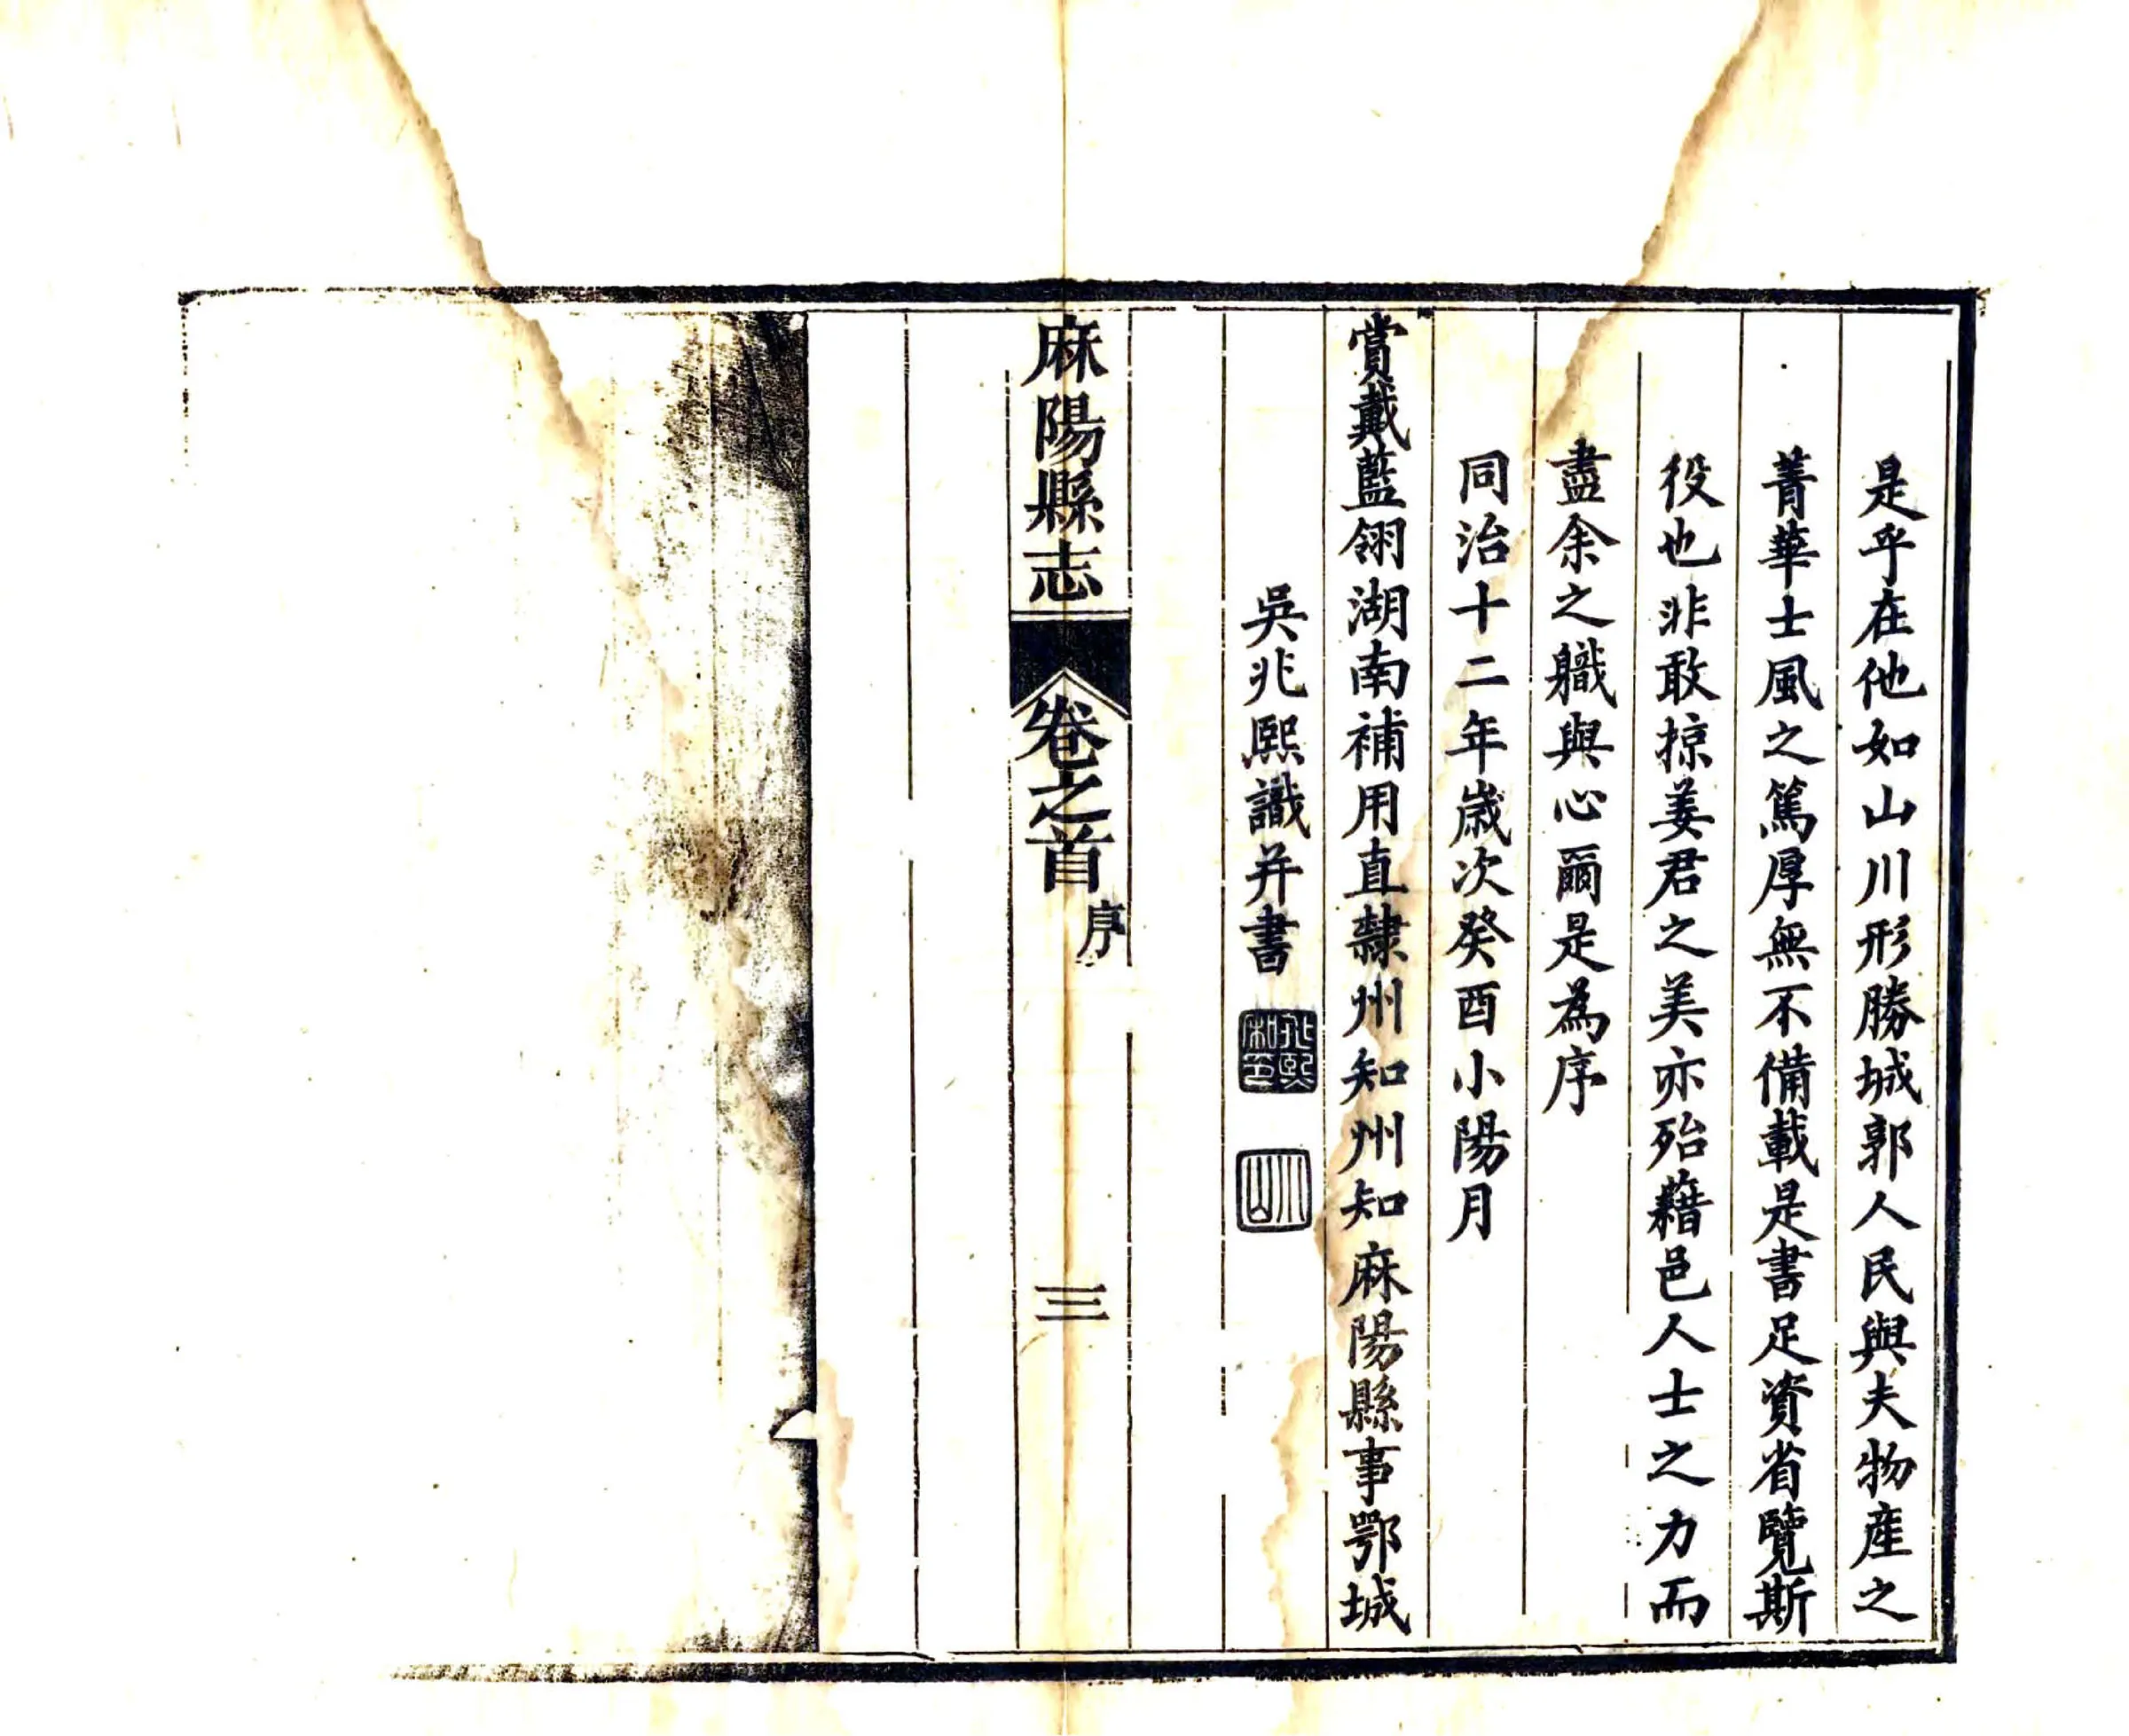 是乎在他如山川形勝城郭人民與夫物產之
菁華士風之篤厚無不備載是書足資省覽斯
役也非敢掠姜君之美亦殆藉邑人士之力而
盡余之職與心爾是為序
同治十二年歲次癸酉小陽月
賞戴藍翎湖南補用直隸州知州知麻陽縣事鄂城
吳兆熙識并書
兆熙和印
小山
麻陽縣志
卷之首
序
三